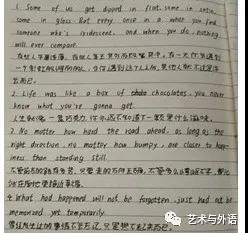 1. Some of us get dipped in flat, some in satin,
some in gloss. But every once in a while you find
someone who's iridescent, and when you do, nothing
will ever compare.
2. Life was like a box of chocolates, you never
know what you're gonna get.
人生就像一盒巧克力,你永远不知道下一颗是什么滋味。
3. No matter how hard the road ahead, as long as the
right direction, no matter how bumpy, are closer to happi-
ness than standing still.
不管前方的路有多苦,只要走的方向正确,不管多么崎岖不平,都比
站在原地更接近幸福。
4. What had happened will not be forgotten, just had not be
memorized yet temporarily.
曾经发生过的事情不会忘记,只是想不起来而已。
艺术与外语